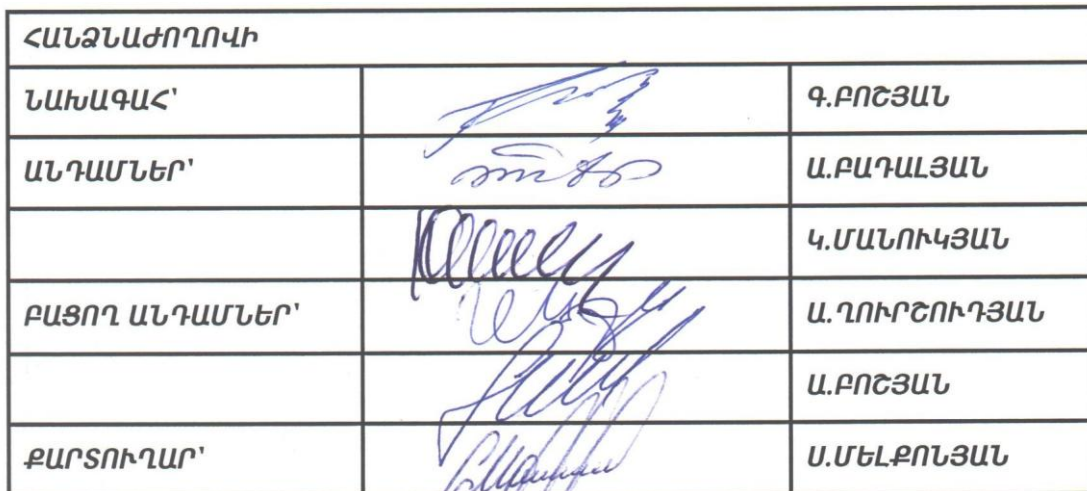 ՀԱՆՁՆԱԺՈՂՈՎԻ
ՆԱԽԱԳԱՀ՝ Գ.ԲՈՇՅԱՆ
ԱՆԴԱՄՆԵՐ՝ Ա.ԲԱԴԱԼՅԱՆ
Կ.ՄԱՆՈՒԿՅԱՆ
ԲԱՑՈՂ ԱՆԴԱՄՆԵՐ՝ Ա.ՂՈՒՐՇՈՒԴՅԱՆ
Ա.ԲՈՇՅԱՆ
ՔԱՐՏՈՒՂԱՐ՝ Ս.ՄԵԼՔՈՆՅԱՆ